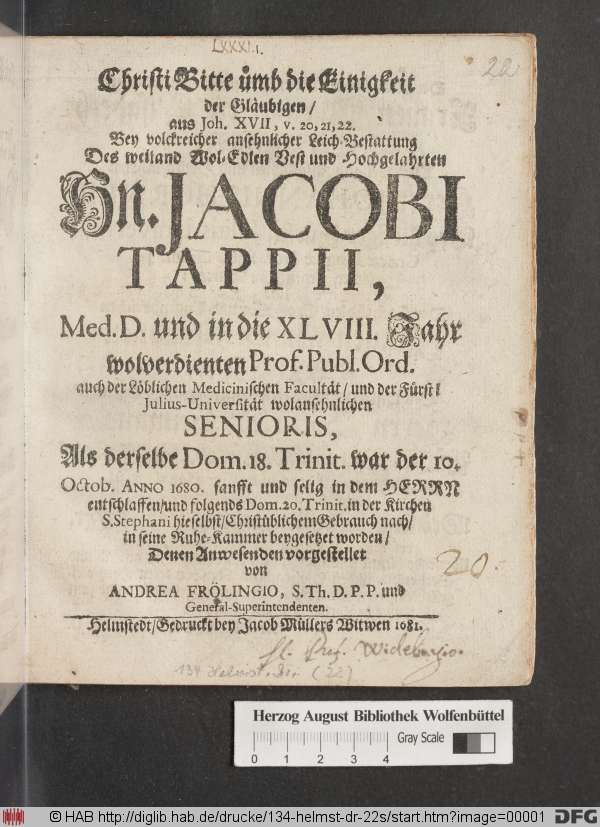 LXXXI.1.
22
Christi Bitte ůmb die Einigkeit
der Gläubigen/
aus Joh. XVII, v. 20, 21, 22.
Bey volckreicher ansehnlicher Leich-Bestattung
Des weiland Wol-Edlen Vest und Hochgelahrten
Hn. JACOBI
TAPPII,
Med. D. und in die XLVIII. Jahr
wolverdienten Prof. Publ. Ord.
auch der Löblichen Medicinischen Facultät/ und der Fürstl
Julius-Universität wolansehnlichen
SENIORIS,
Als derselbe Dom. 18. Trinit. war der 10.
Octob. ANNO 1680. sanfft und selig in dem HERRN
entschlaffen/und folgends Dom. 20. Trinit. in der Kirchen
S. Stephani hieselbst/Christüblichem Gebrauch nach/
in seine Ruhe-Kammer beygesetzet worden/
Denen Anwesenden vorgestellet
von
ANDREA FRÖLINGIO, S. Th. D. P. P. und
General-Superintendenten.
20.
Helmstedt/Gedruckt bey Jacob Müllers Witwen 1681.
Prof. Wideburgio.
134 Helmst. Dr. (22)
Herzog August Bibliothek Wolfenbüttel
0 1 2 3 4 Gray Scale
© HAB http://diglib.hab.de/drucke/134-helmst-dr-22s/start.htm?image=00001 DFG